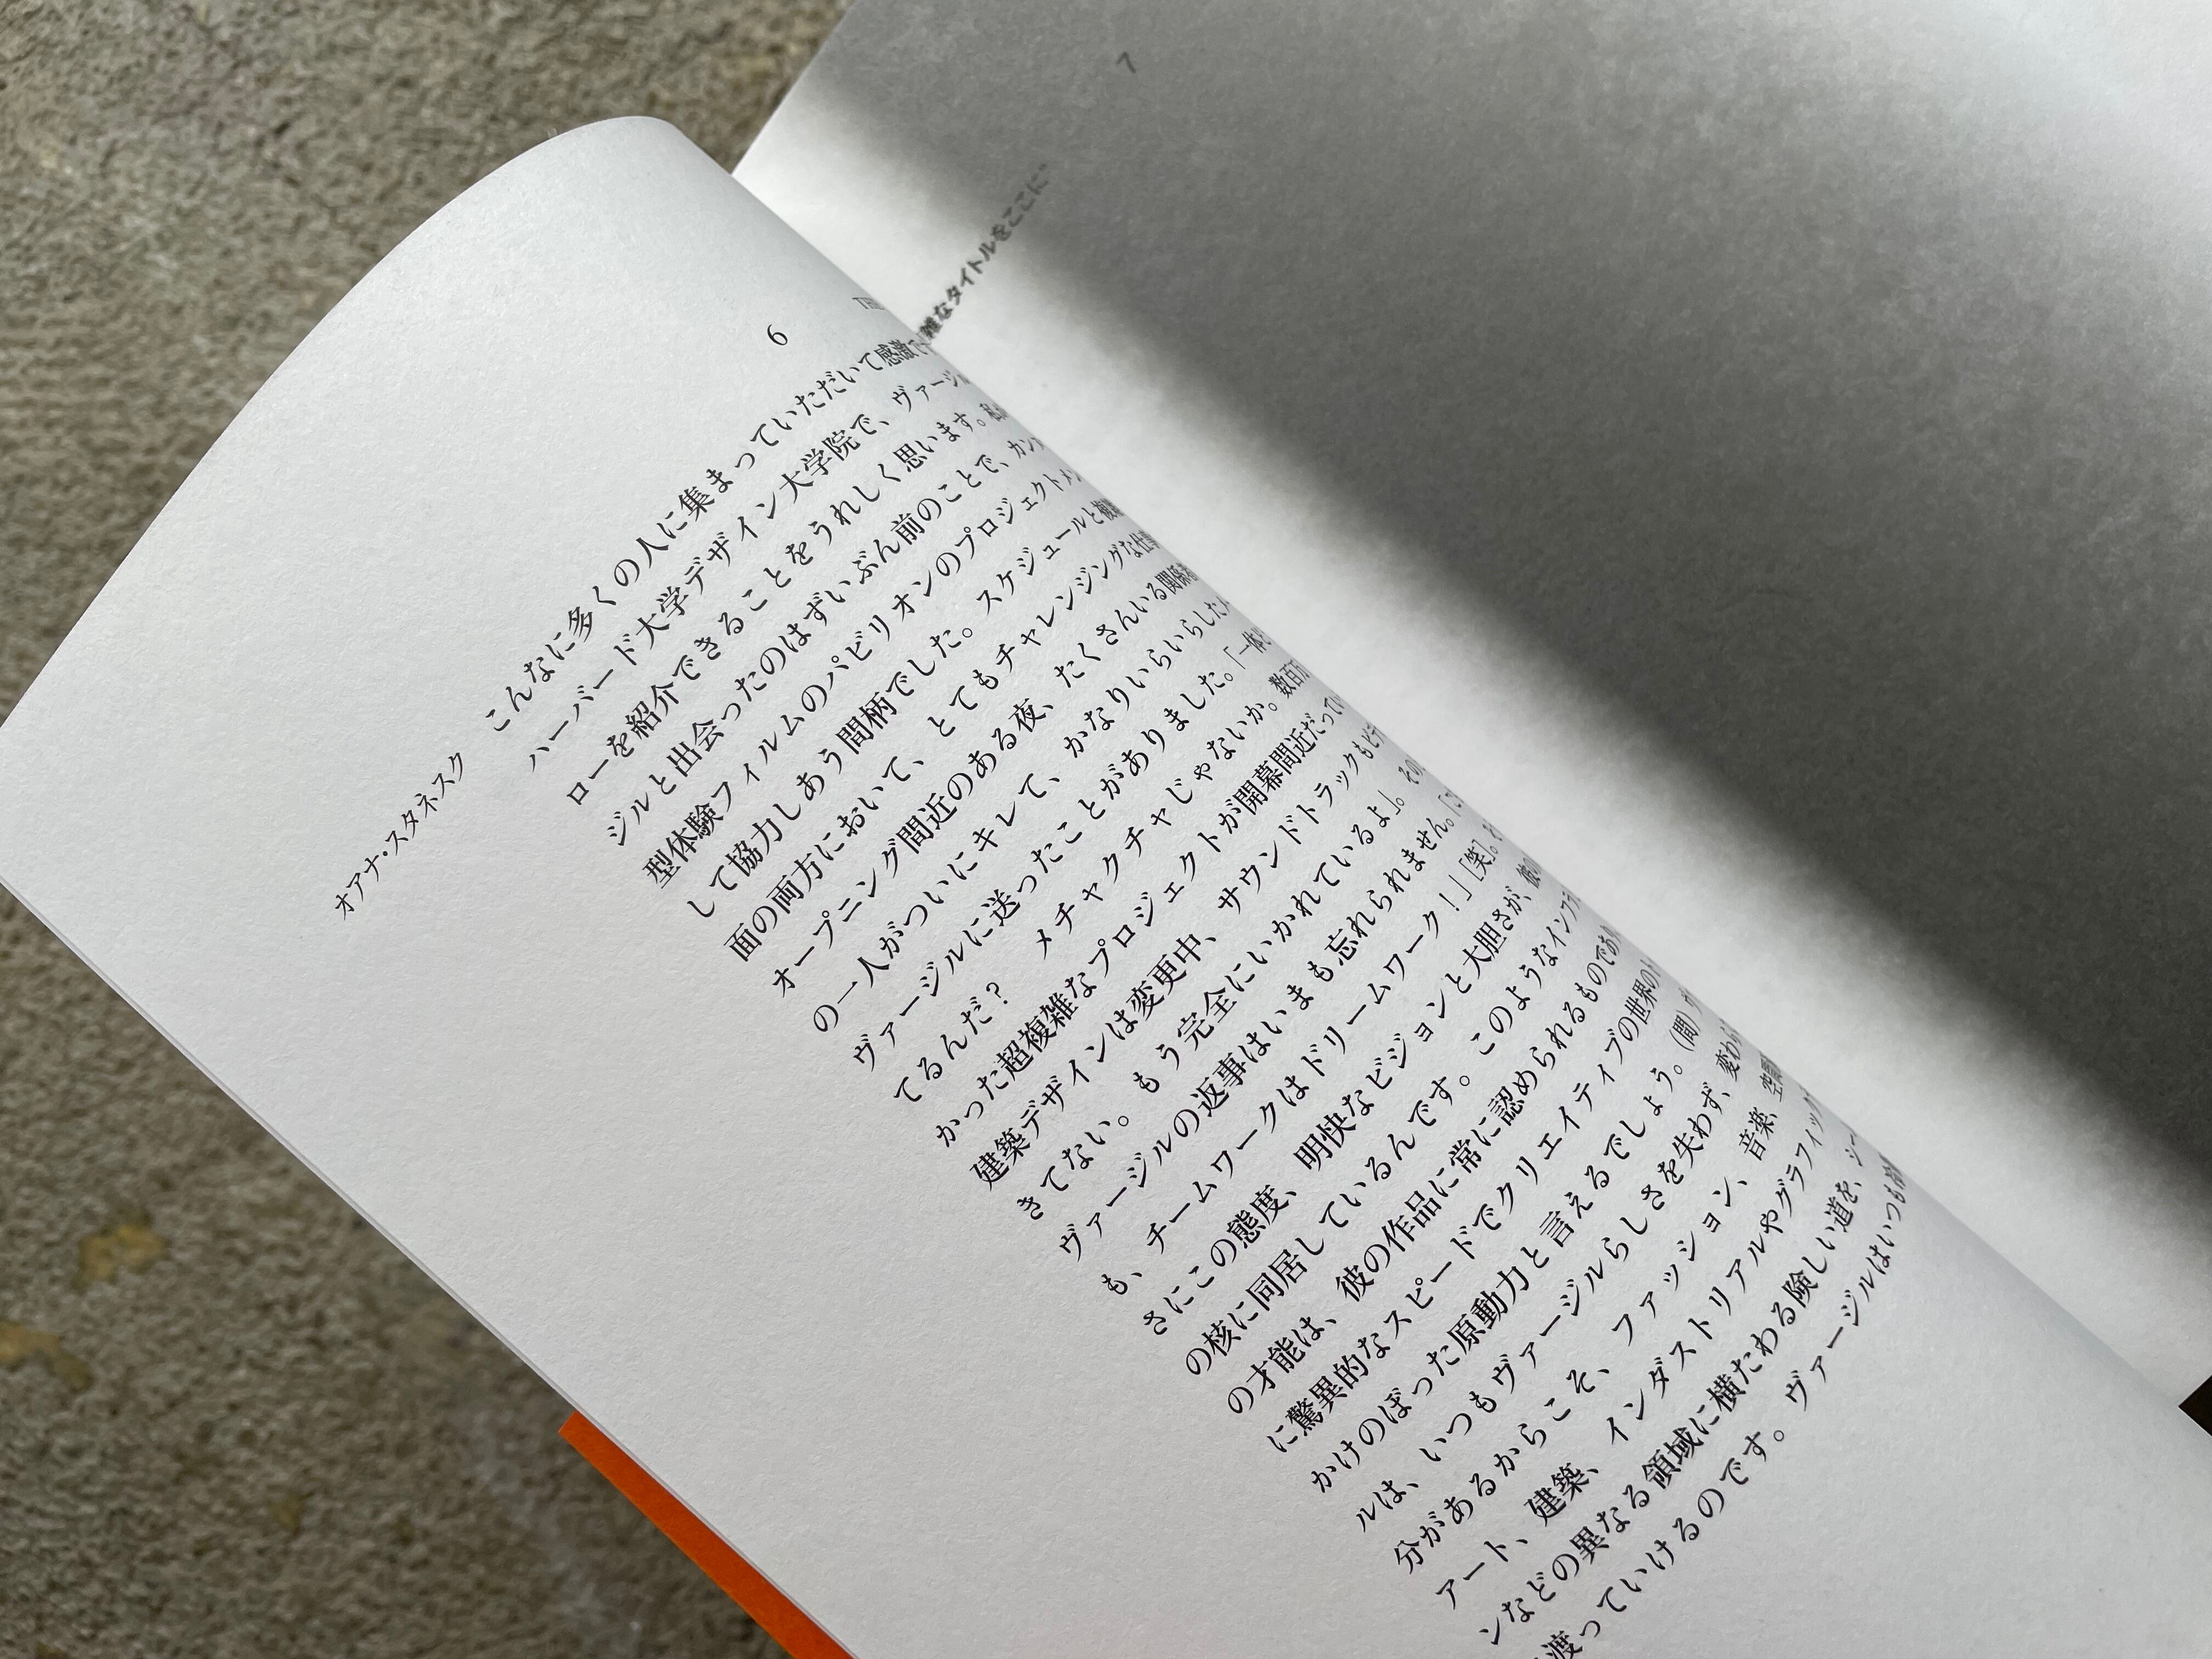 6
オアナ・スタネスク
こんなに多くの人に集まっていただいて感激で
ハーバード大学デザイン大学院で、ヴァージル
ローを紹介できることをうれしく思います。私
ジルと出会ったのはずいぶん前のことで、カン
型体験フィルムのパビリオンのプロジェクトメン
して協力しあう間柄でした。スケジュールと複雑
面の両方において、とてもチャレンジングな仕事
オープニング間近のある夜、たくさんいる関係者
の一人がついにキレて、かなりいらいらした
ヴァージルに送ったことがありました。「一体
てるんだ? メチャクチャじゃないか。数百万
かった超複雑なプロジェクトが開幕間近だって
建築デザインは変更中、サウンドトラックもビデ
きてない。もう完全にいかれているよ」。その
ヴァージルの返事はいまも忘れられません。「
も、チームワークはドリームワーク!」[笑]。
さにこの態度、明快なビジョンと大胆さが、彼の
の核に同居しているんです。このようなイン
の才能は、彼の作品に常に認められるものであり
に驚異的なスピードでクリエイティブの世界の
かけのぼった原動力と言えるでしょう。(間)
ルは、いつもヴァージルらしさを失わず、変わら
分があるからこそ、ファッション、音楽、空間
アート、建築、インダストリアルやグラフィック
ンなどの異なる領域に横たわる険しい道を、
渡っていけるのです。ヴァージルはいつも
7
雑なタイトルをここに"